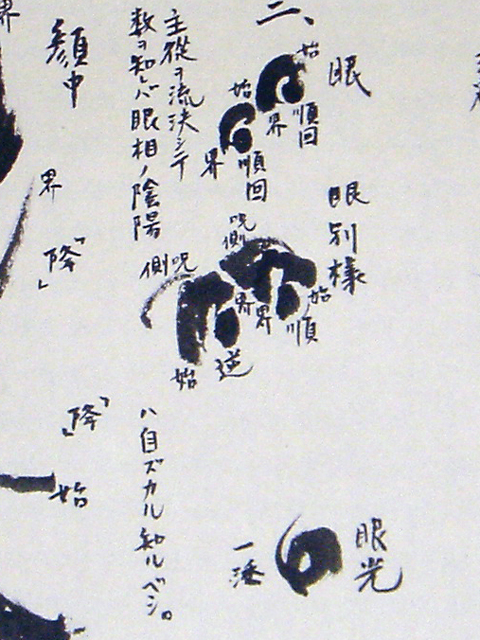 二、
眼
始
順回
界
始
順回
界
眼別様
呪側
始
順
界
界
呪側
逆
始
眼光
一
主從ヲ流決シテ
数ヲ知レバ眼相ノ陰陽
ハ自ズカル知ルベシ。
顔中
界
「降」
「降」
始
界